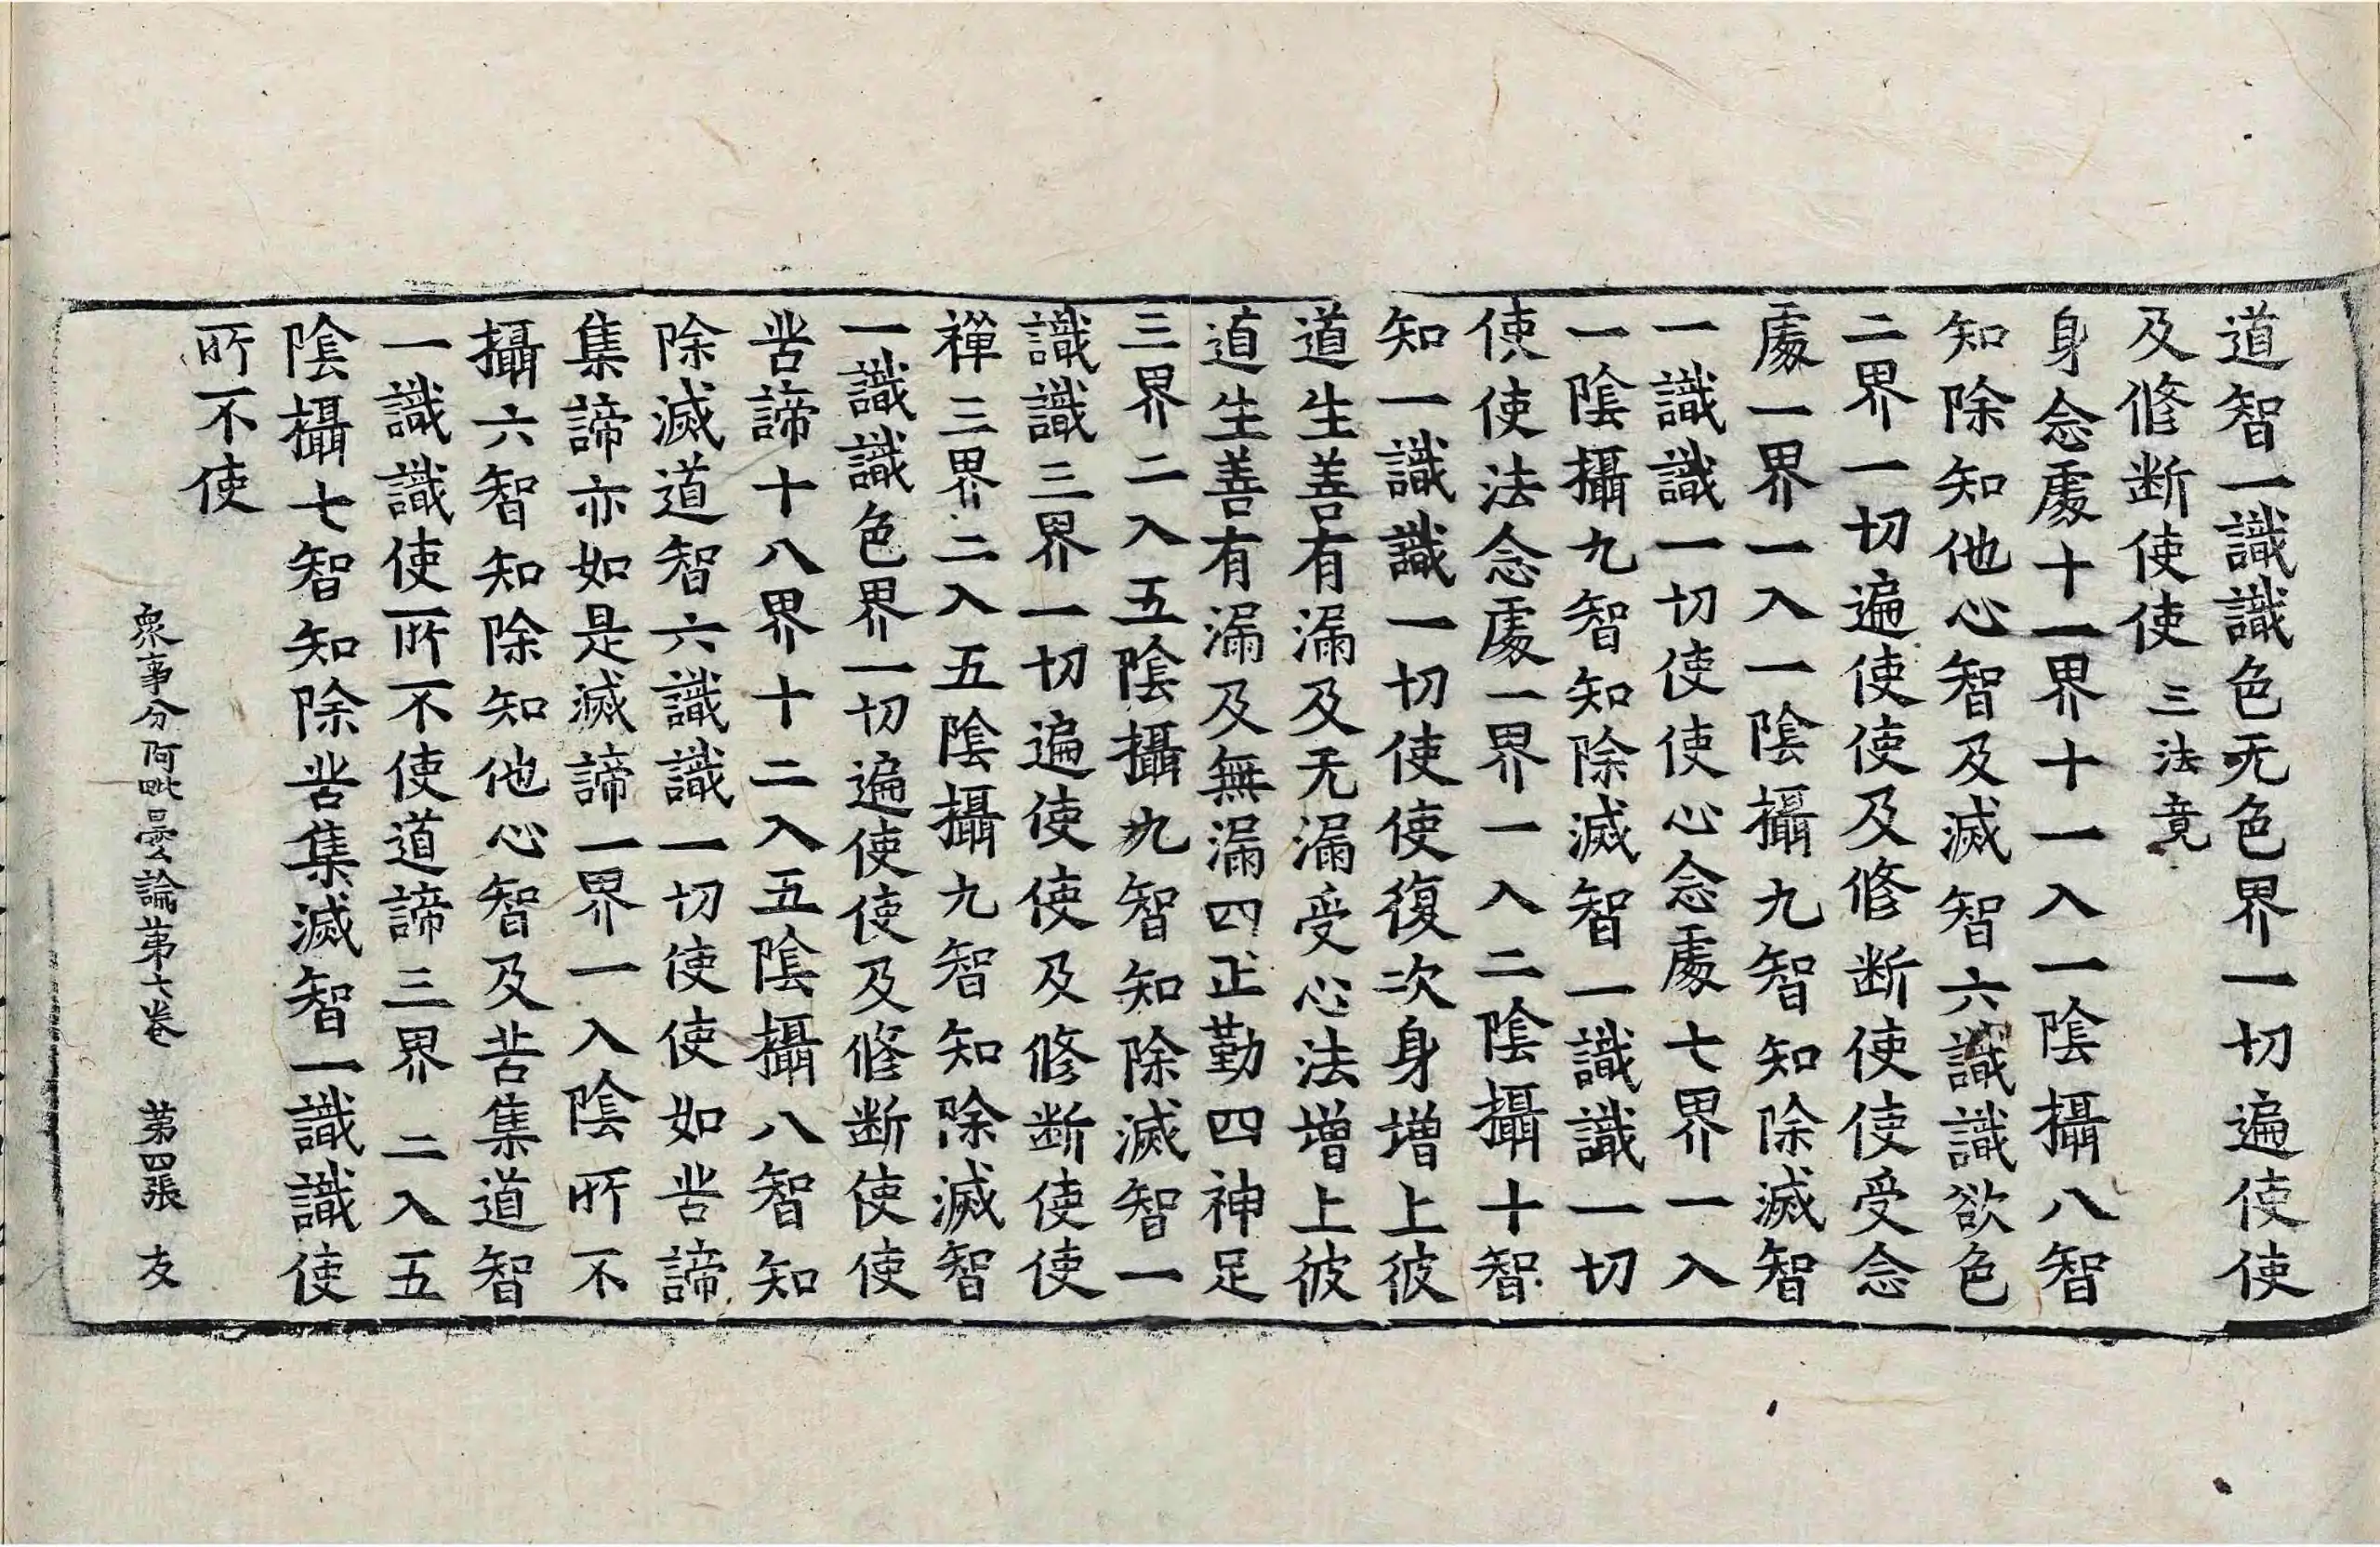 道智一識識色无色界一切遍使使
及修断使使 三法竟
身念處十一界十一入一陰攝八智
知除知他心智及滅智六識識欲色
二界一切遍使使及修断使使受念
處一界一入一陰攝九智知除滅智
一識識一切使使心念處七界一入
一陰攝九智知除滅智一識識一切
使使法念處一界一入二陰攝十智
知一識識一切使使復次身增上彼
道生善有漏及无漏受心法增上彼
道生善有漏及無漏四正勤四神足
三界二入五陰攝九智知除滅智一
識識三界一切遍使使及修断使使
禪三界二入五陰攝九智知除滅智
一識識色界一切遍使使及修断使使
苦諦十八界十二入五陰攝八智知
除滅道智六識識一切使使如苦諦
集諦亦如是滅諦一界一入陰所不
攝六智知除知他心智及苦集道智
一識識使所不使道諦三界二入五
陰攝七智知除苦集滅智一識識使
所不使
衆事分阿毗曇論第七卷 第四張 友